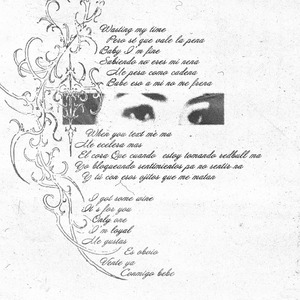 Wasting my time
Pero sé que vale la pena
Baby I'm fine
Sabiendo no eres mi nena
Me pesa como cadena
Babe eso a mi no me frena
When you text me ma
Me ecelera mas
El cosa Que cuando estoy tomando redbull ma
Yo bloqueando sentimientos pa no sentir na
Y tú con esos ojitos que me matan
I got some wine
It's for you
Only one
I'm loyal
Me gustas
Es obvio
Vente ya
Conmigo bebe